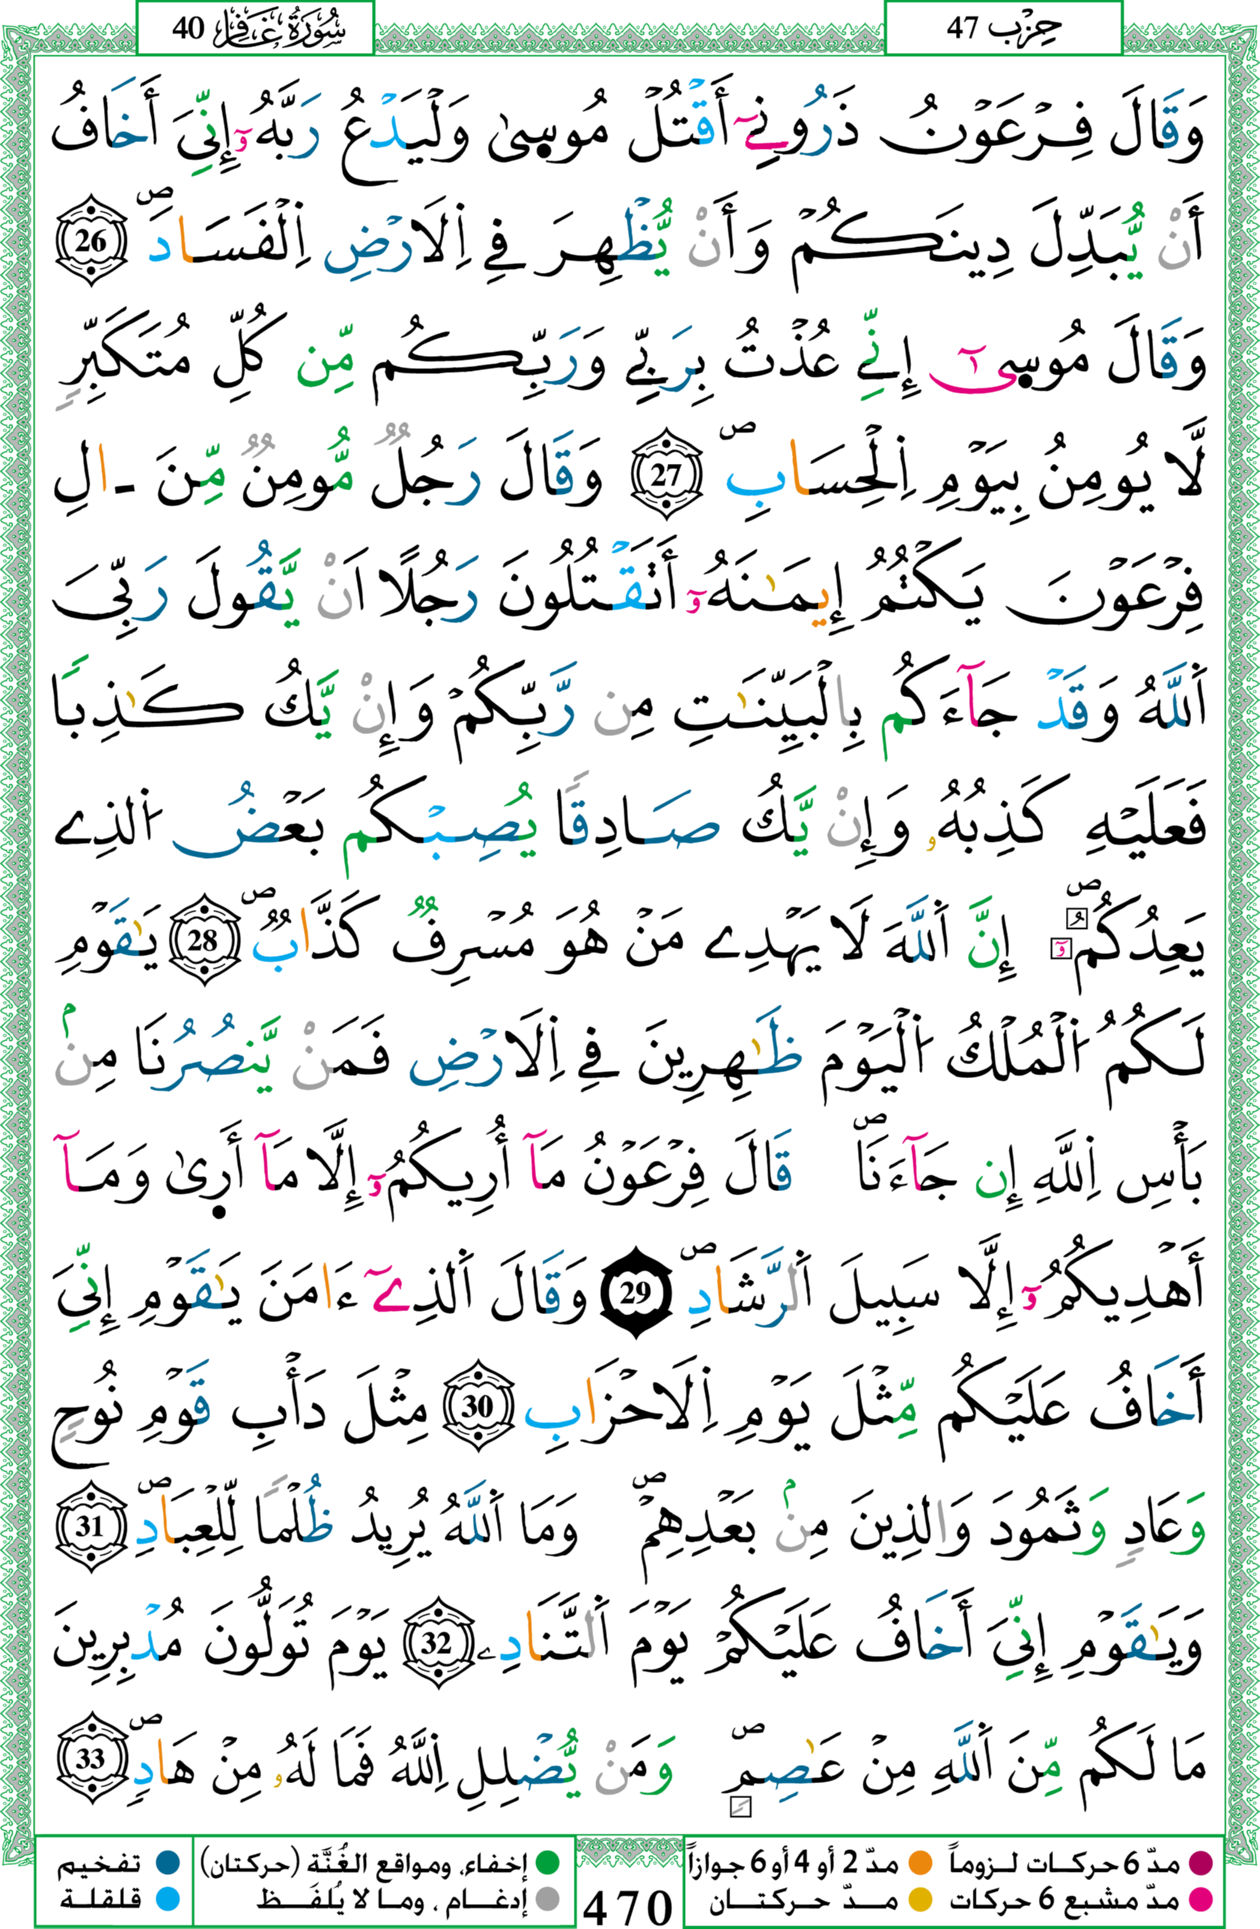 حِزْب 47
سُورَةُ غَافِر 40
وَقَالَ فِرْعَوْنُ ذَرُونِےٓ أَقْتُلْ مُوس۪ىٰ وَلْيَدْعُ رَبَّهُۥٓ إِنِّيَ أَخَافُ
أَنْ يُّبَدِّلَ دِينَكُمْ وَأَنْ يُّظْهِرَ فِے اِ۬لَارْضِ اِ۬لْفَسَادَۖ 26
وَقَالَ مُوس۪ىٰٓ إِنِّے عُذْتُ بِرَبِّے وَرَبِّكُم مِّن كُلِّ مُتَكَبِّرٖ
لَّا يُومِنُ بِيَوْمِ اِ۬لْحِسَابِۖ 27 وَقَالَ رَجُلٞ مُّومِنٞ مِّنَ ـالِ
فِرْعَوْنَ يَكْتُمُ إِيمَٰنَهُۥٓ أَتَقْتُلُونَ رَجُلًا اَنْ يَّقُولَ رَبِّيَ
اَ۬للَّهُ وَقَدْ جَآءَكُم بِالْبَيِّنَٰتِ مِن رَّبِّكُمْ وَإِنْ يَّكُ كَٰذِبٗا
فَعَلَيْهِ كَذِبُهُۥ وَإِنْ يَّكُ صَادِقٗا يُصِبْكُم بَعْضُ اُ۬لذِے
يَعِدُكُمُۥٓۖ إِنَّ اَ۬للَّهَ لَا يَهْدِے مَنْ هُوَ مُسْرِفٞ كَذَّابٞۖ 28 يَٰقَوْمِ
لَكُمُ اُ۬لْمُلْكُ اُ۬لْيَوْمَ ظَٰهِرِينَ فِے اِ۬لَارْضِ فَمَنْ يَّنصُرُنَا مِنۢ
بَأْسِ اِ۬للَّهِ إِن جَآءَنَاۖ قَالَ فِرْعَوْنُ مَآ أُرِيكُمُۥٓ إِلَّا مَآ أَر۪ىٰ وَمَآ
أَهْدِيكُمُۥٓ إِلَّا سَبِيلَ اَ۬لرَّشَادِۖ 29 وَقَالَ اَ۬لذِےٓ ءَامَنَ يَٰقَوْمِ إِنِّيَ
أَخَافُ عَلَيْكُم مِّثْلَ يَوْمِ اِ۬لَاحْزَابِ 30 مِثْلَ دَأْبِ قَوْمِ نُوحٖ
وَعَادٖ وَثَمُودَ وَالذِينَ مِنۢ بَعْدِهِمْۖ وَمَا اَ۬للَّهُ يُرِيدُ ظُلْمٗا لِّلْعِبَادِۖ 31
وَيَٰقَوْمِ إِنِّيَ أَخَافُ عَلَيْكُمْ يَوْمَ اَ۬لتَّنَادِۦ 32 يَوْمَ تُوَلُّونَ مُدْبِرِينَ
مَا لَكُم مِّنَ اَ۬للَّهِ مِنْ عَٰصِمٖۖ وَمَنْ يُّضْلِلِ اِ۬للَّهُ فَمَا لَهُۥ مِنْ هَادٖۖ 33
مدّ 6 حركات لـزومـاً مدّ 2 أو 4 أو 6 جوازاً
مدّ مشبع 6 حركات مـــدّ حـــركـتـــان
470
إخفاء، ومواقع الغُنَّة (حركتان) تفخيم
إدغــام ، ومــا لا يُلفَــظ قـلـقـلـة